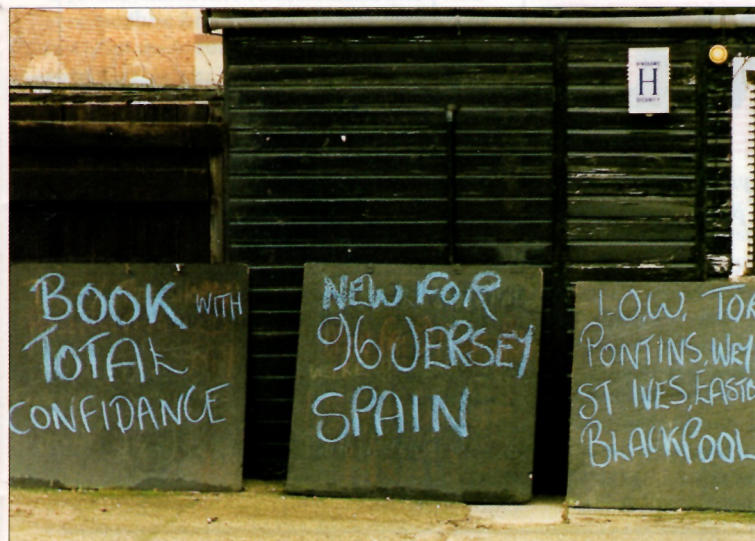 BOOK WITH
TOTAL
CONFIDANCE
NEW FOR
96 JERSEY
SPAIN
I.O.W. TOR
PONTINS, WEY
ST IVES, EASTB
BLACKPOOL
H
SECURITY